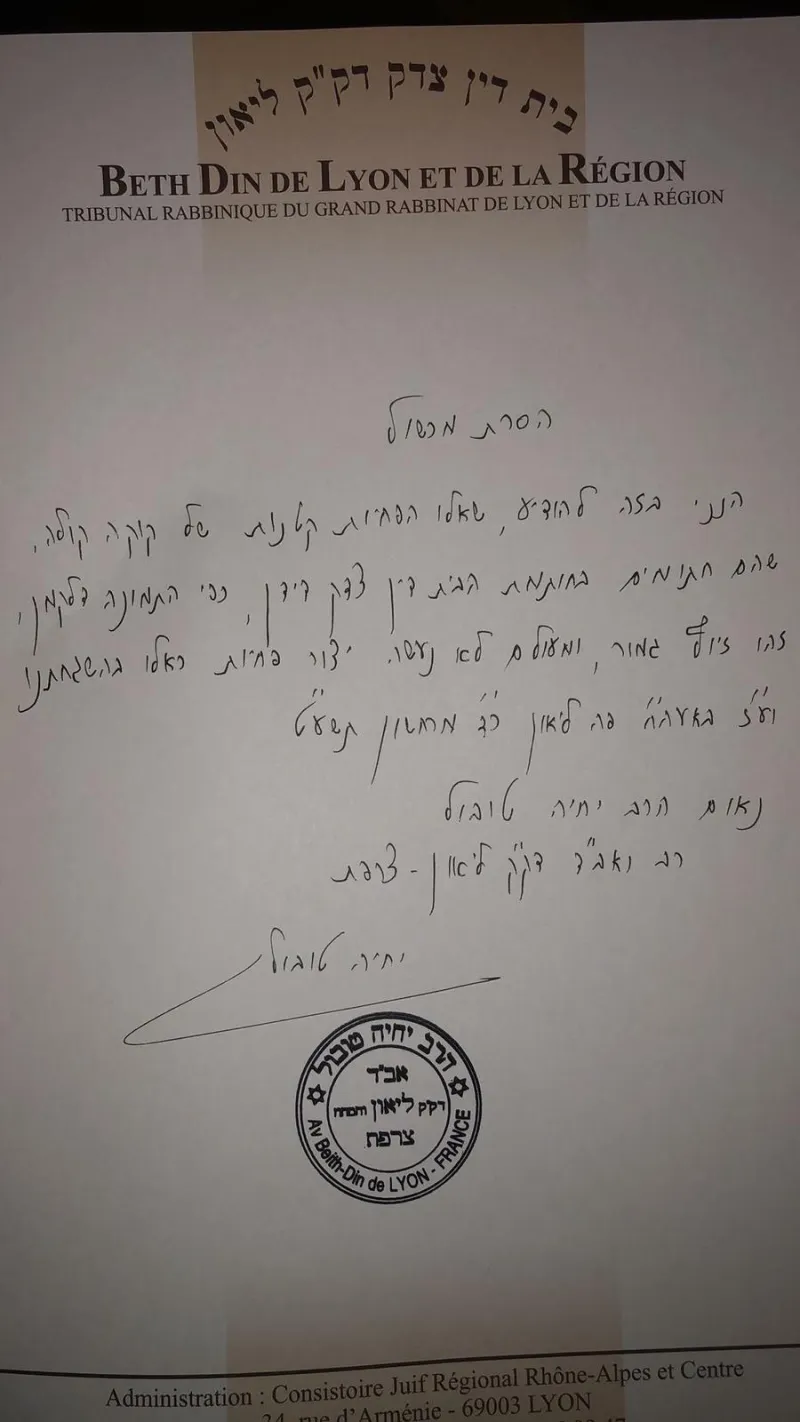 בית דין צדק דק"ק ליאון
BETH DIN DE LYON ET DE LA RÉGION
TRIBUNAL RABBINIQUE DU GRAND RABBINAT DE LYON ET DE LA RÉGION
הסרת מכשול
הנני בזה להודיע, שאלו הפחיות קטנות של קוקה קולה,
שהם חתומים בחותמת הבית דין צדק דידן, כפי התמונה דלקמן,
זהו זיוף גמור, ומעולם לא נעשה יצור פחיות כאלו בהשגחתנו
וע"ז באעה"ח פה ליאון כ"ג מרחשון תשע"ט
נאום הרב יחיה טובול
רב ואב"ד דק"ק ליאון - צרפת
יחיה טובול
הרב יחיה טובול
אב"ד
דקק ליאון והסביבה
צרפת
Av Beith-Din de LYON - FRANCE
Administration : Consistoire Juif Régional Rhône-Alpes et Centre
34, rue d'Arménie - 69003 LYON